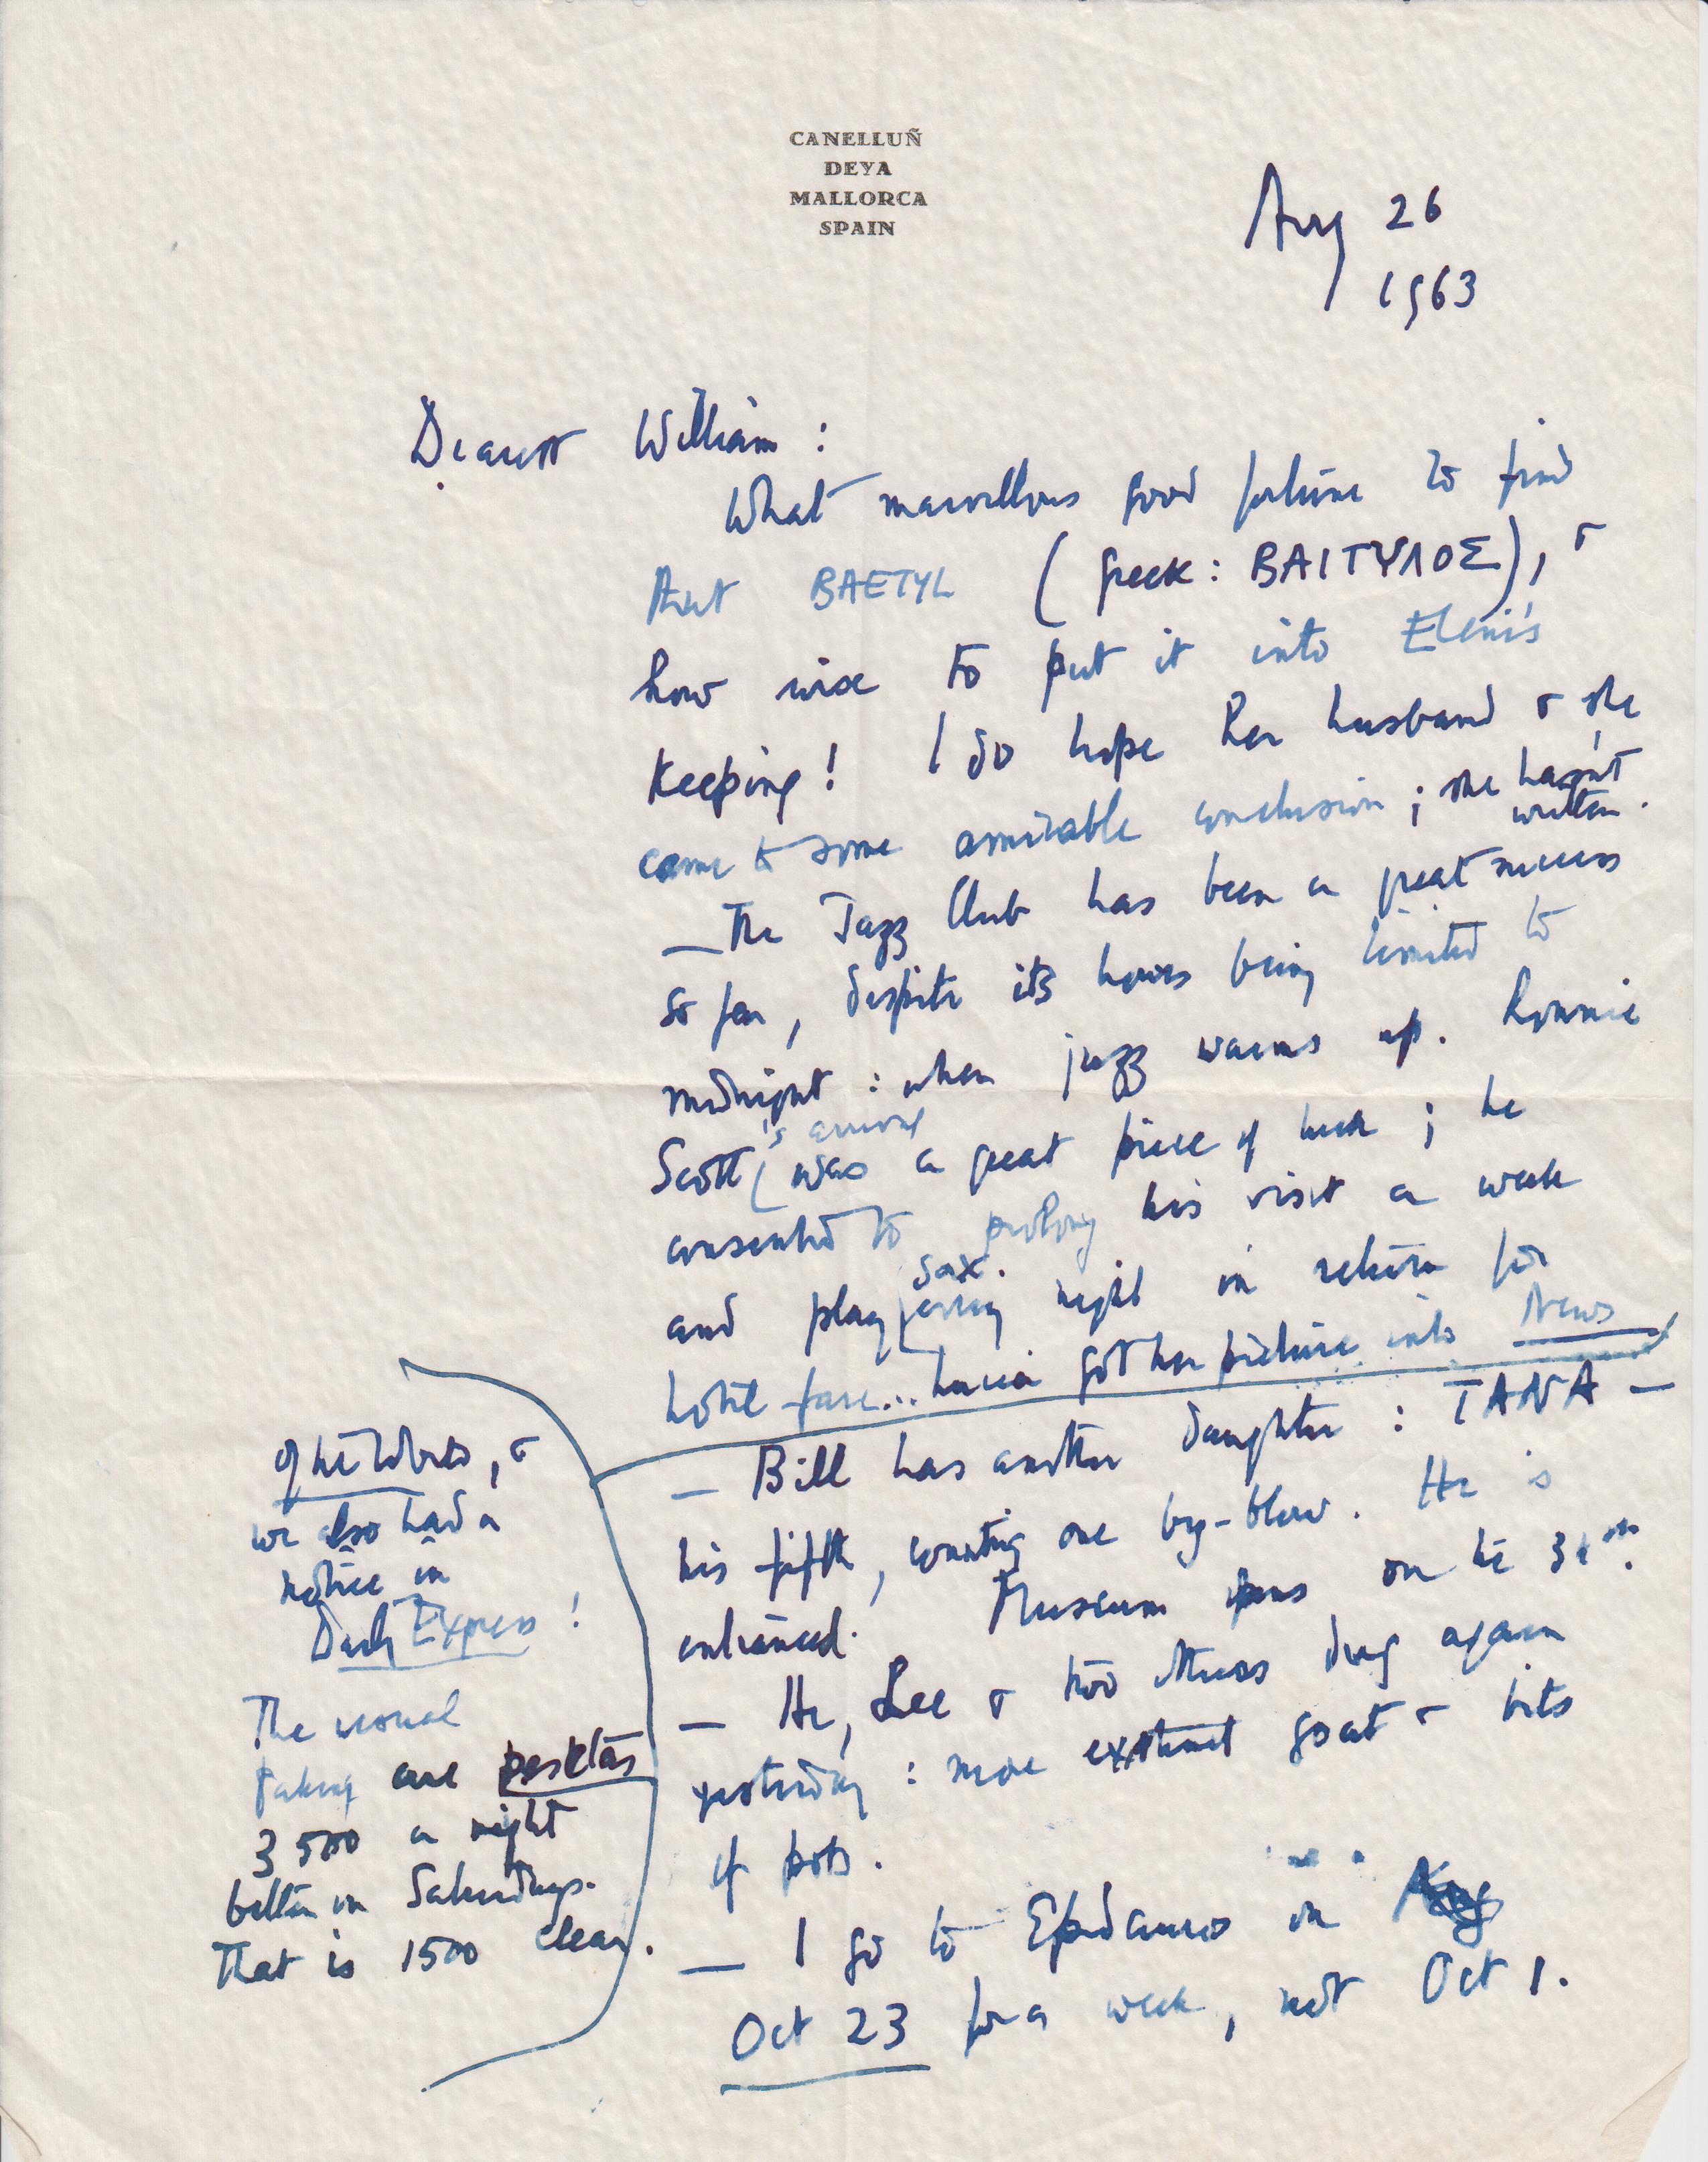 CANELLUÑ
DEYA
MALLORCA
SPAIN
Aug 26
1963
Dearest William :
What marvellous good fortune to find
that BAETYL (Greek : ΒΑΙΤΥΛΟΣ), &
how wise to put it into Eleni's
keeping! I do hope her husband & she
come to some amicable conclusion ; she hasn't
written.
— The Jazz Club has been a great success
so far, despite its hours being limited to
midnight : when jazz warms up. Ronnie
Scott's arrival was a great piece of luck ; he
consented to prolong his visit a week
and play sax. every night in return for
hotel fare... Lucia got her picture into News
of the World, &
we also had a
notice in
Daily Express !
The usual
takings are pesetas
3500 a night
better on Saturdays.
That is 1500 clear.
— Bill has another daughter : TANA —
his fifth, counting one by-blow. He is
entranced. Museum opens on the 31st.
— He, Lee & two others dug again
yesterday : more extinct goat & bits
of pots.
— I go to Epidauros in
Oct 23 for a week, not Oct 1.